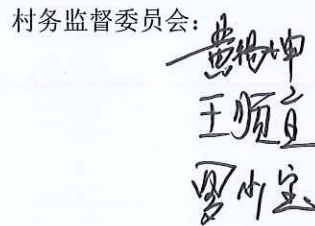 村务监督委员会：
黄杨坤
王顺宜
罗少宝